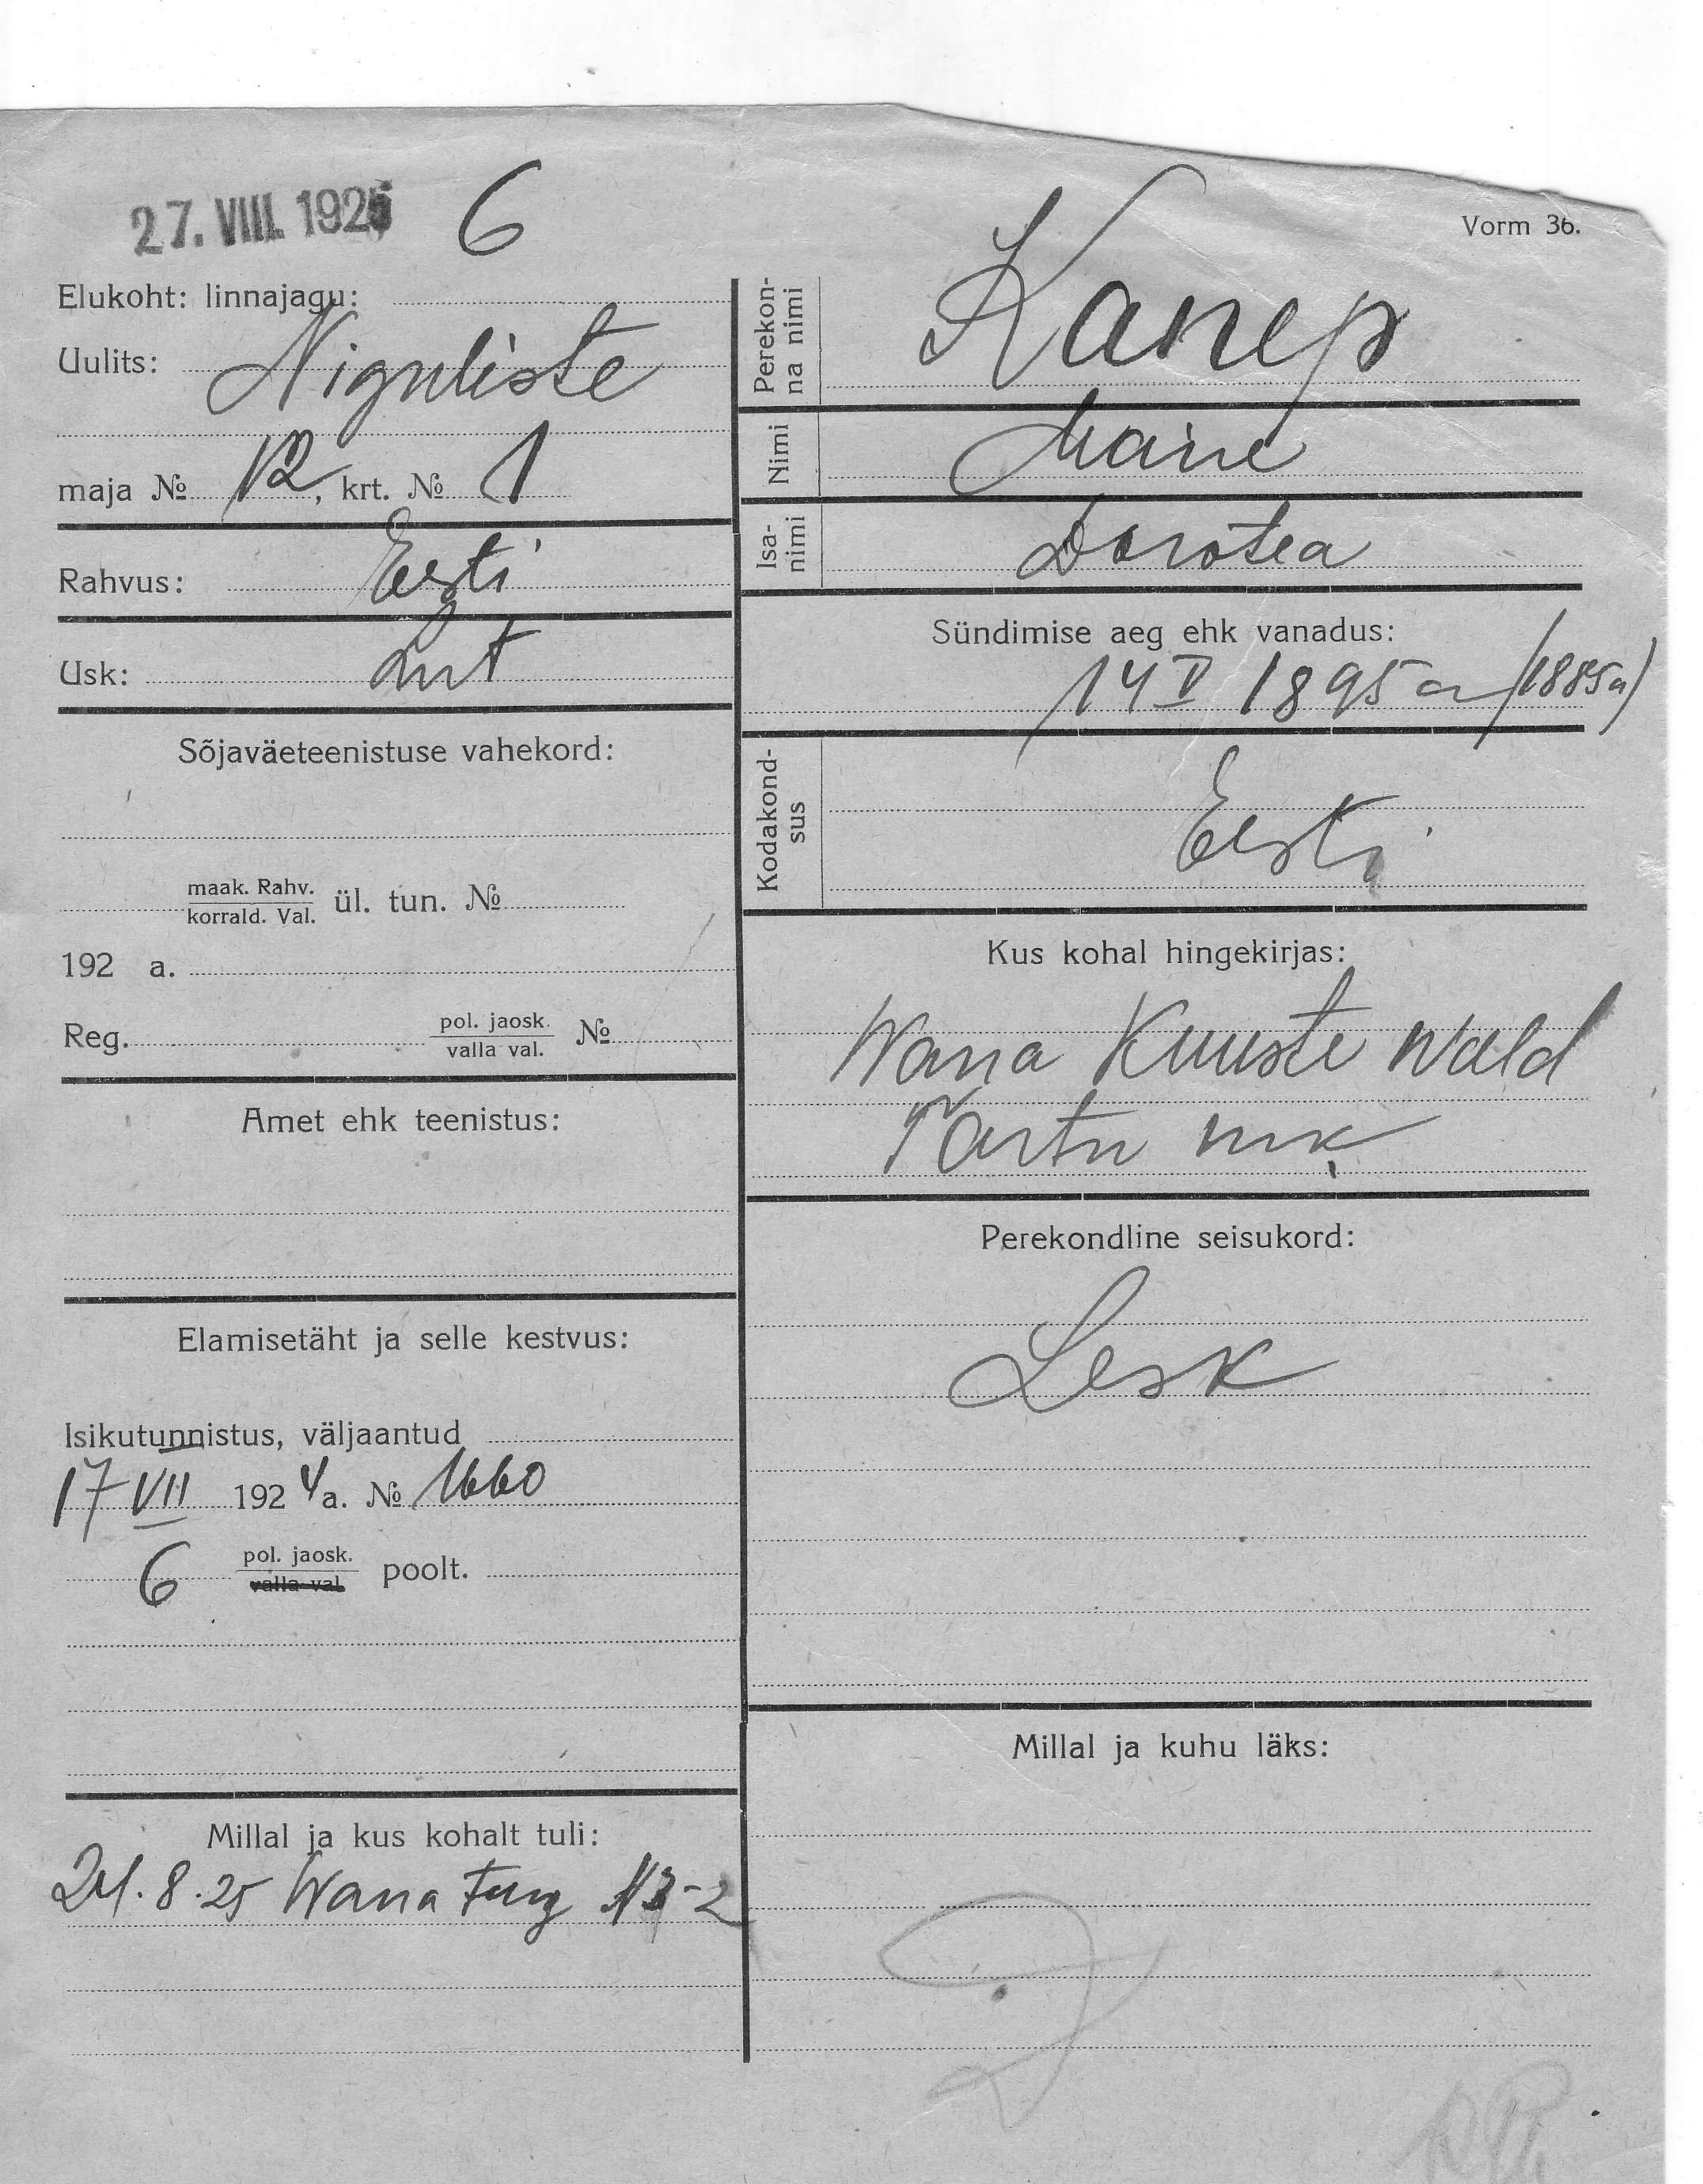 27. VIII. 1925 6
Vorm 36.
Elukoht: linnajagu:
Uulits: Niguliste
maja № 12, krt. № 1
Rahvus: Eesti
Usk: Lut
Sõjaväeteenistuse vahekord:
maak. Rahv.
korrald. Val. ül. tun. №
192 a.
Reg. pol. jaosk.
valla val. №
Amet ehk teenistus:
Elamisetäht ja selle kestvus:
Isikutunnistus, väljaantud
17 VII 1924 a. № 1660
6 pol. jaosk.
valla val. poolt.
Millal ja kus kohalt tuli:
24. 8. 25 Wana turg №3-2
Perekon-
na nimi Kanep
Nimi Marie
Isa-
nimi Dorotea
Sündimise aeg ehk vanadus:
14 V 1895 a (1885 a)
Kodakond-
sus Eesti
Kus kohal hingekirjas:
Wana Kuuste wald
Tartu mk
Perekondline seisukord:
Lesk
Millal ja kuhu läks: